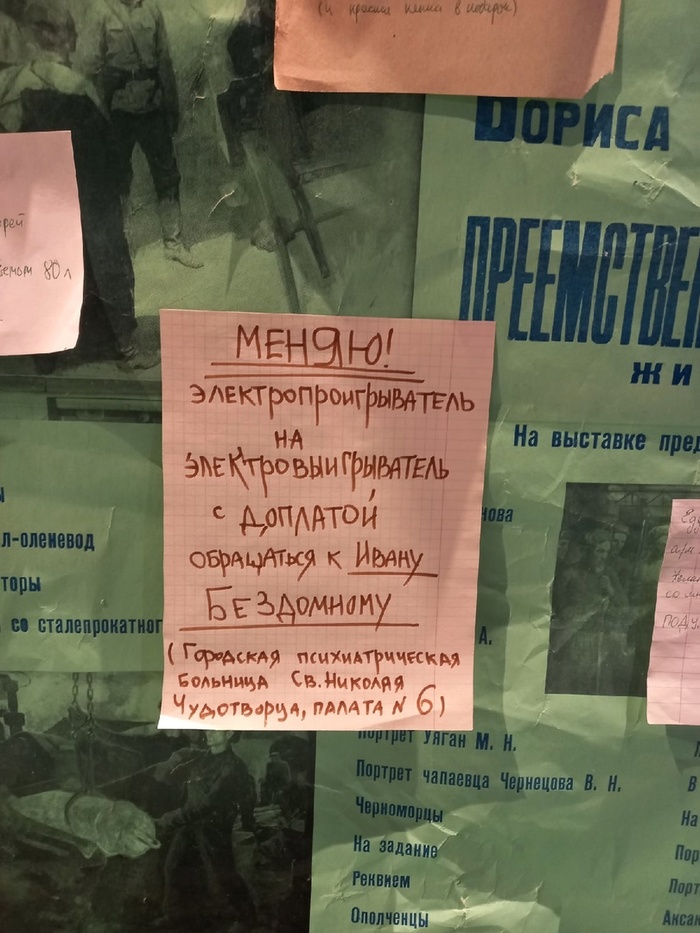 (и красная кепка в подарок)
БОРИСА
80 л
ПРЕЕМСТВЕН
ЖИ
На выставке пред
МЕНЯЮ!
ЭЛЕКТРОПРОИГРЫВАТЕЛЬ
НА
ЭЛЕКТРОВЫИГРЫВАТЕЛЬ
С ДОПЛАТОЙ
ОБРАЩАТЬСЯ К ИВАНУ
БЕЗДОМНОМУ
(ГОРОДСКАЯ ПСИХИАТРИЧЕСКАЯ
БОЛЬНИЦА СВ.НИКОЛАЯ
ЧУДОТВОРЦА, ПАЛАТА N 6)
нова
л-оленевод
торы
со сталепрокатног
А.
Портрет Уяган М. Н.
Портрет чапаевца Чернецова В. Н.
Черноморцы
На задание
Реквием
Ополченцы
В
На
Пор
Порт
Аксак